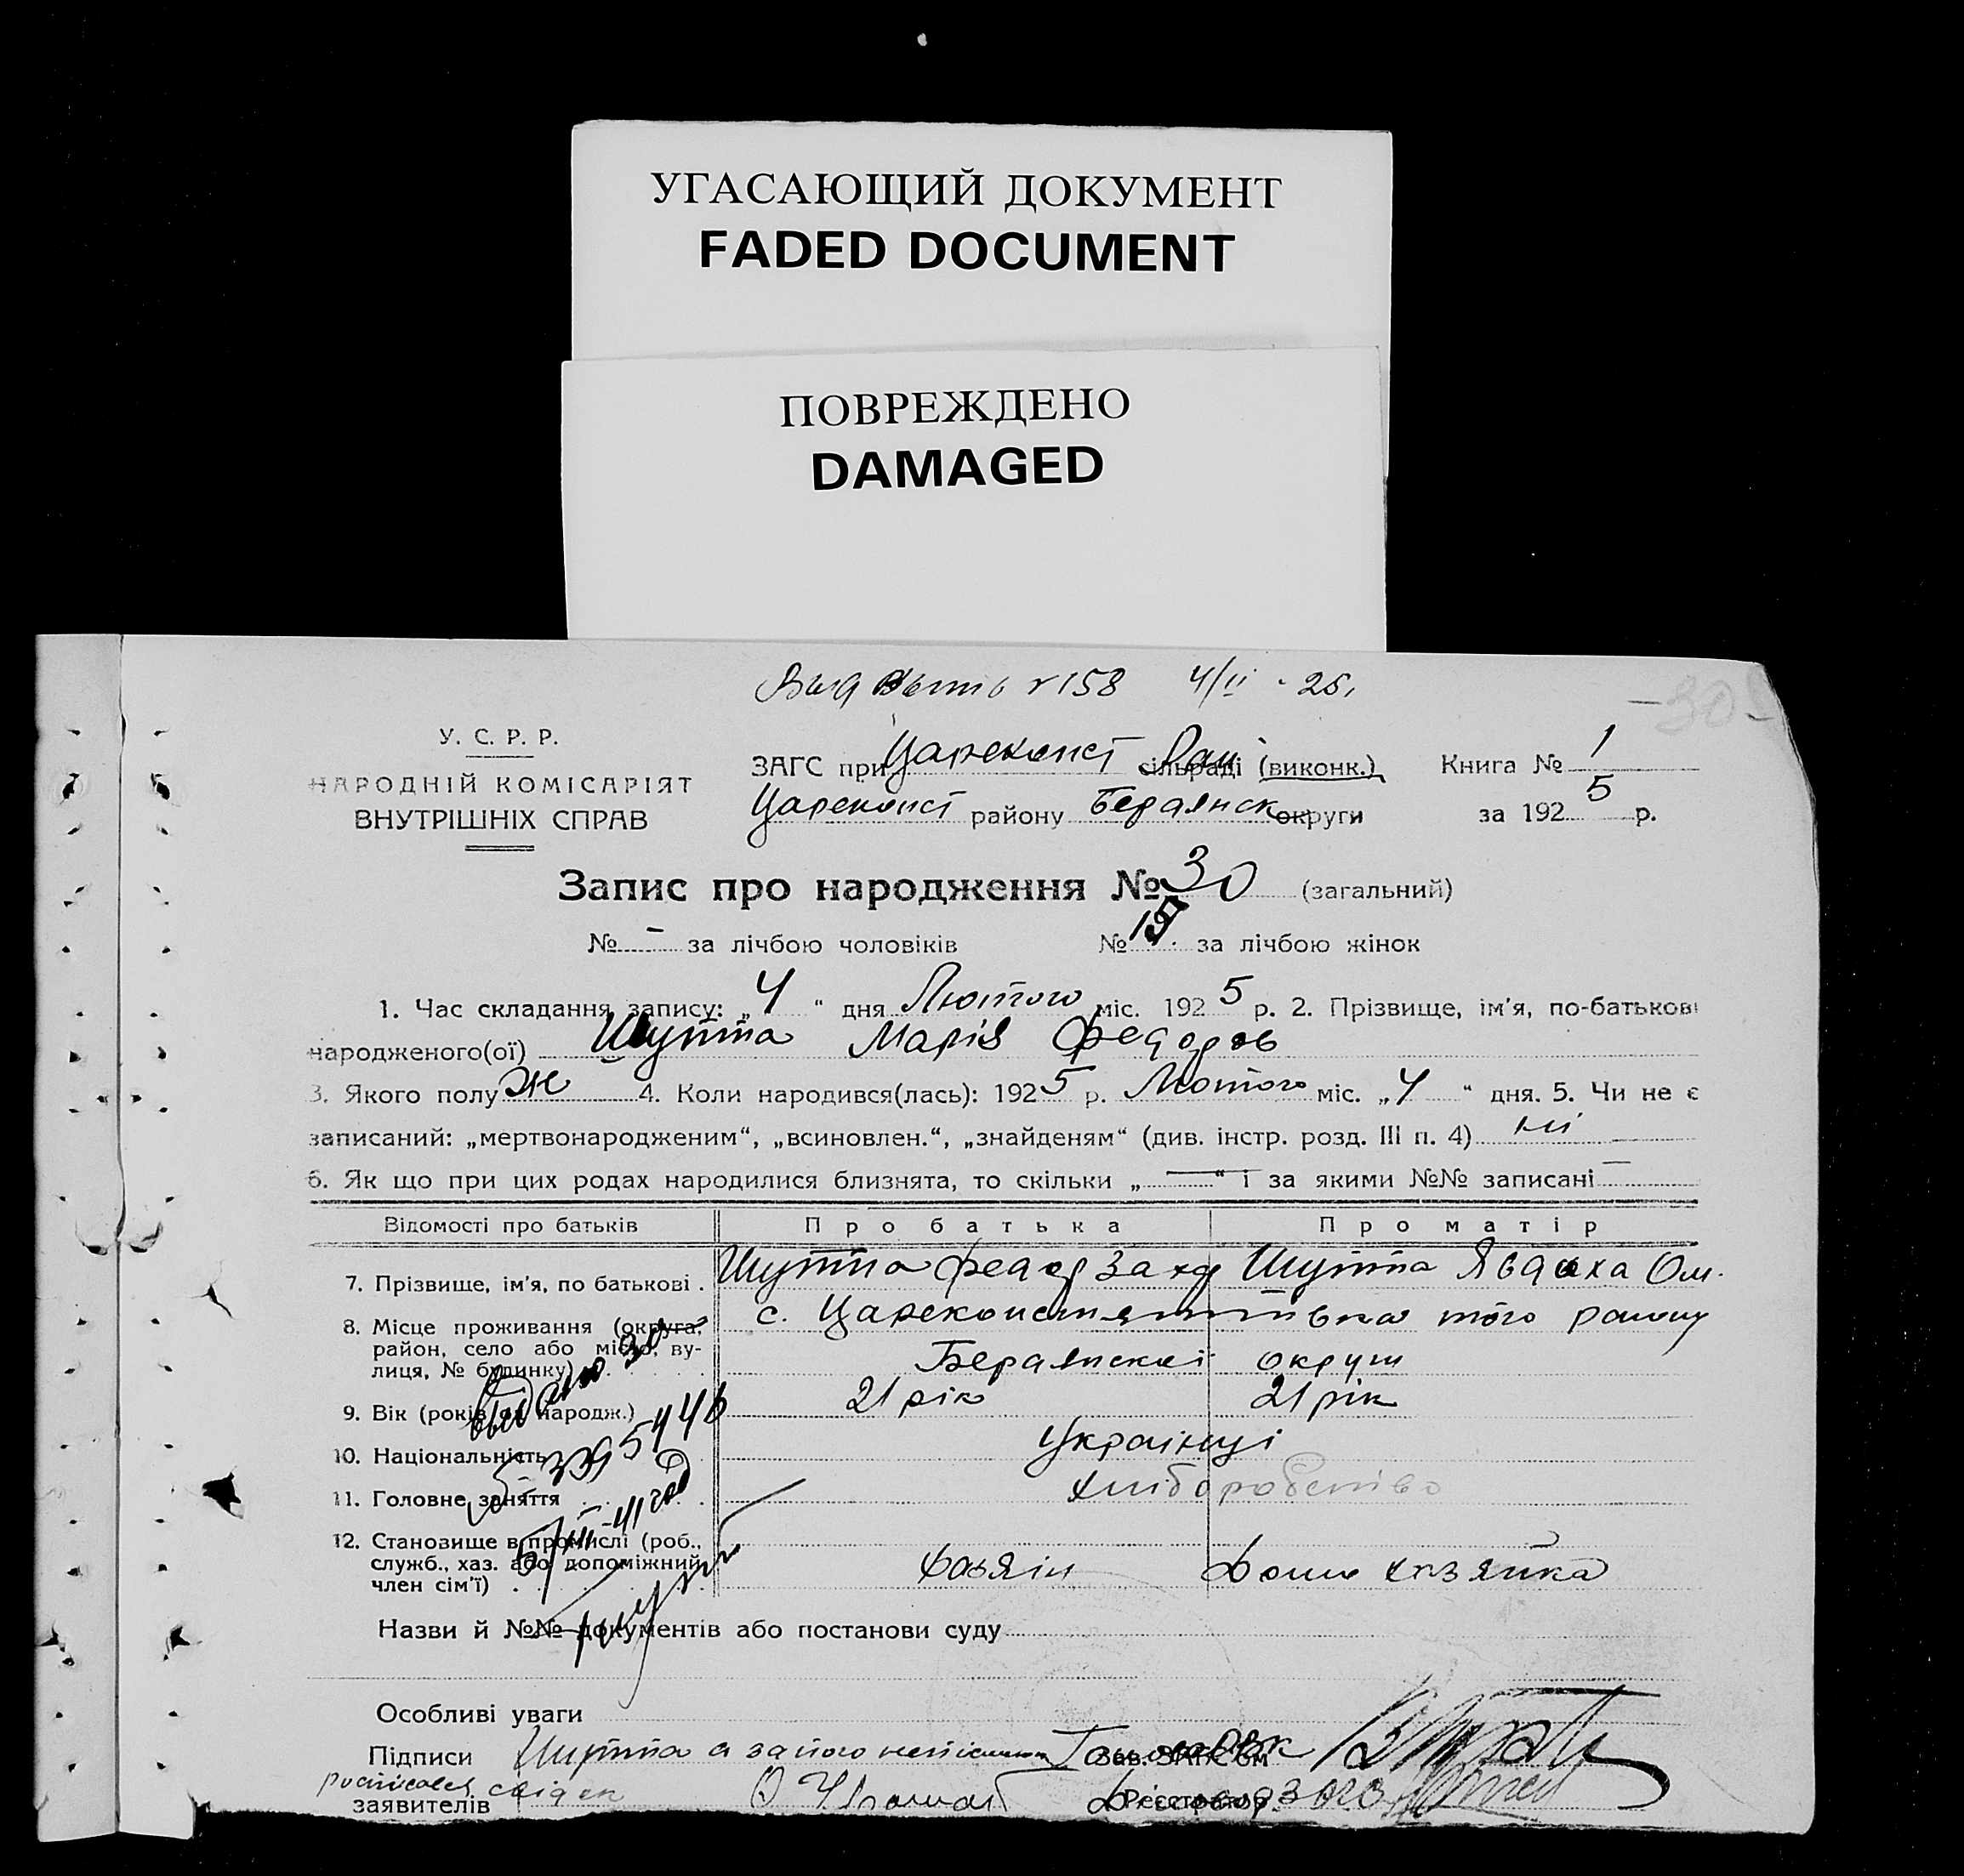 УГАСАЮЩИЙ ДОКУМЕНТ
FADED DOCUMENT
ПОВРЕЖДЕНО
DAMAGED
158 4/II - 25.
У. С. Р. Р.
НАРОДНІЙ КОМІСАРІЯТ
ВНУТРІШНІХ СПРАВ
ЗАГС при Цареконст сільраді (виконк.) Книга № 1
Цареконст району Бердянск округи за 1925 р.
Запис про народження № 30 (загальний)
№ - за лічбою чоловіків № за лічбою жінок
1. Час складання запису: „4“ дня Лютого міс. 1925 р. 2. Прізвище, ім'я, по-батькові
народженого(ої) Шутта Марія Федоров
3. Якого полу ж 4. Коли народився(лась): 1925 р. Лютого міс. „4“ дня. 5. Чи не є
записаний: „мертвонародженим“, „всиновлен.“, „знайденям“ (див. інстр. розд. III п. 4) ні
6. Як що при цих родах народилися близнята, то скільки „—“ і за якими №№ записані —
Відомості про батьків Про батька Про матір
7. Прізвище, ім'я, по батькові . Шутта Федор Захар Шутта Явдоха Ом.
8. Місце проживання (округа, район, село або місто, вулиця, № будинку) с. Цареконстянтінвка того району
Бердянскої округи
9. Вік (років од народж.) 21 рік 21 рік
10. Національність Українці
11. Головне заняття хліборобство
12. Становище в промислі (роб., служб., хаз. або допоміжний член сім'ї) Хазяін Дома хазяйка
Назви й №№ документів або постанови суду
Особливі уваги
Підписи Шутта а за його
заявителів свідек
Зав. ЗАГС'ом
Реєстратор